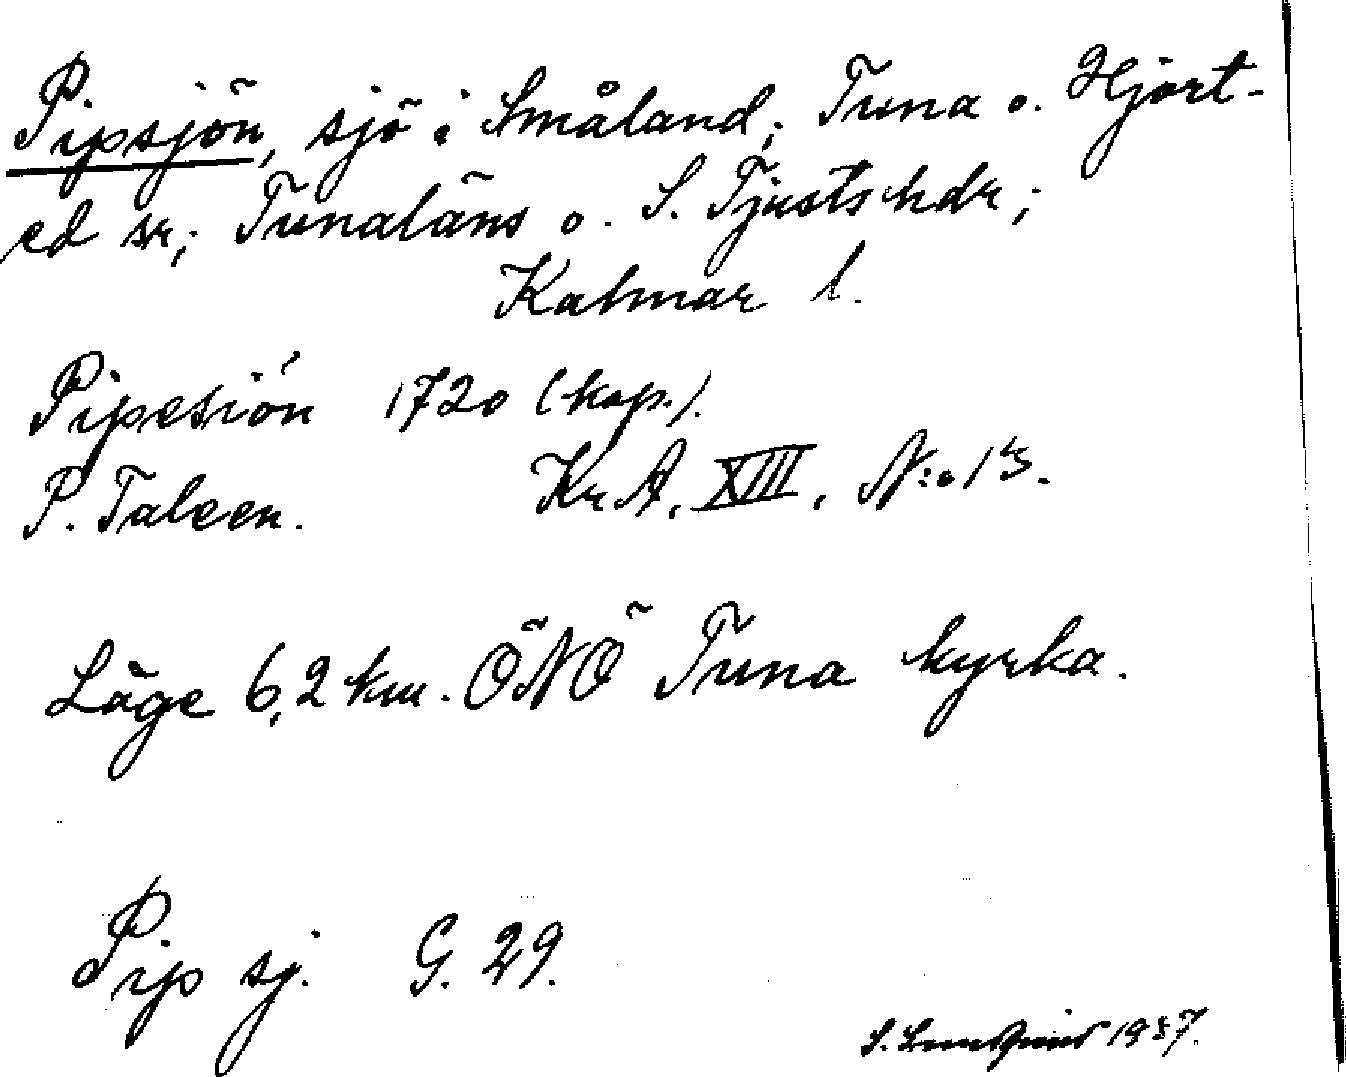 Pipsjön, sjö i Småland; Tuna o. Hjort-
ed sr; Tunaläns o. S. Tjusts hdr;
Kalmar l.
Pipesión 1720 (kop.).
P. Taleen. Kr A, XIII, N:o 13.
Läge 6,2 km. ÖNÖ Tuna kyrka.
Pip sj. G. 29.
S. 1937.